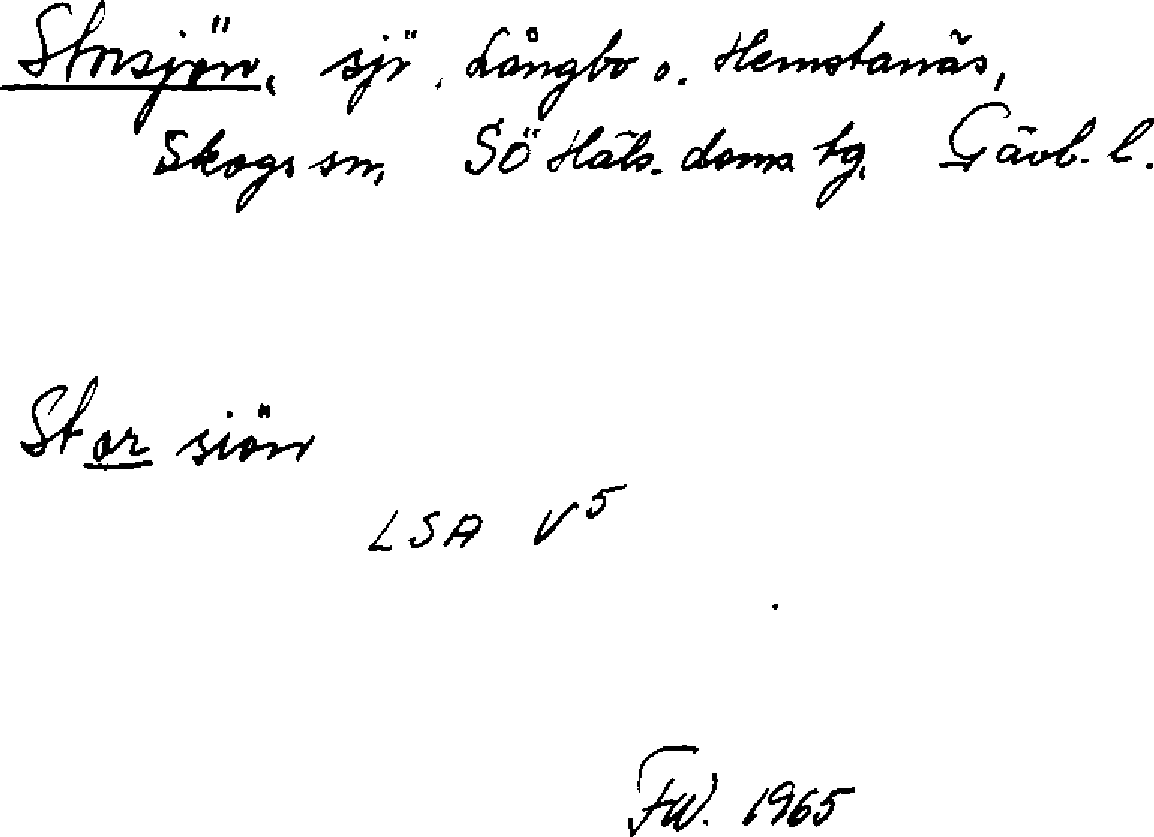 Storsjön, sjö, Långbo o. Hemstanäs,
Skogs sn, SÖ Häls. doms tg, Gävl. l.
Stor siön
LSA V5
FW. 1965